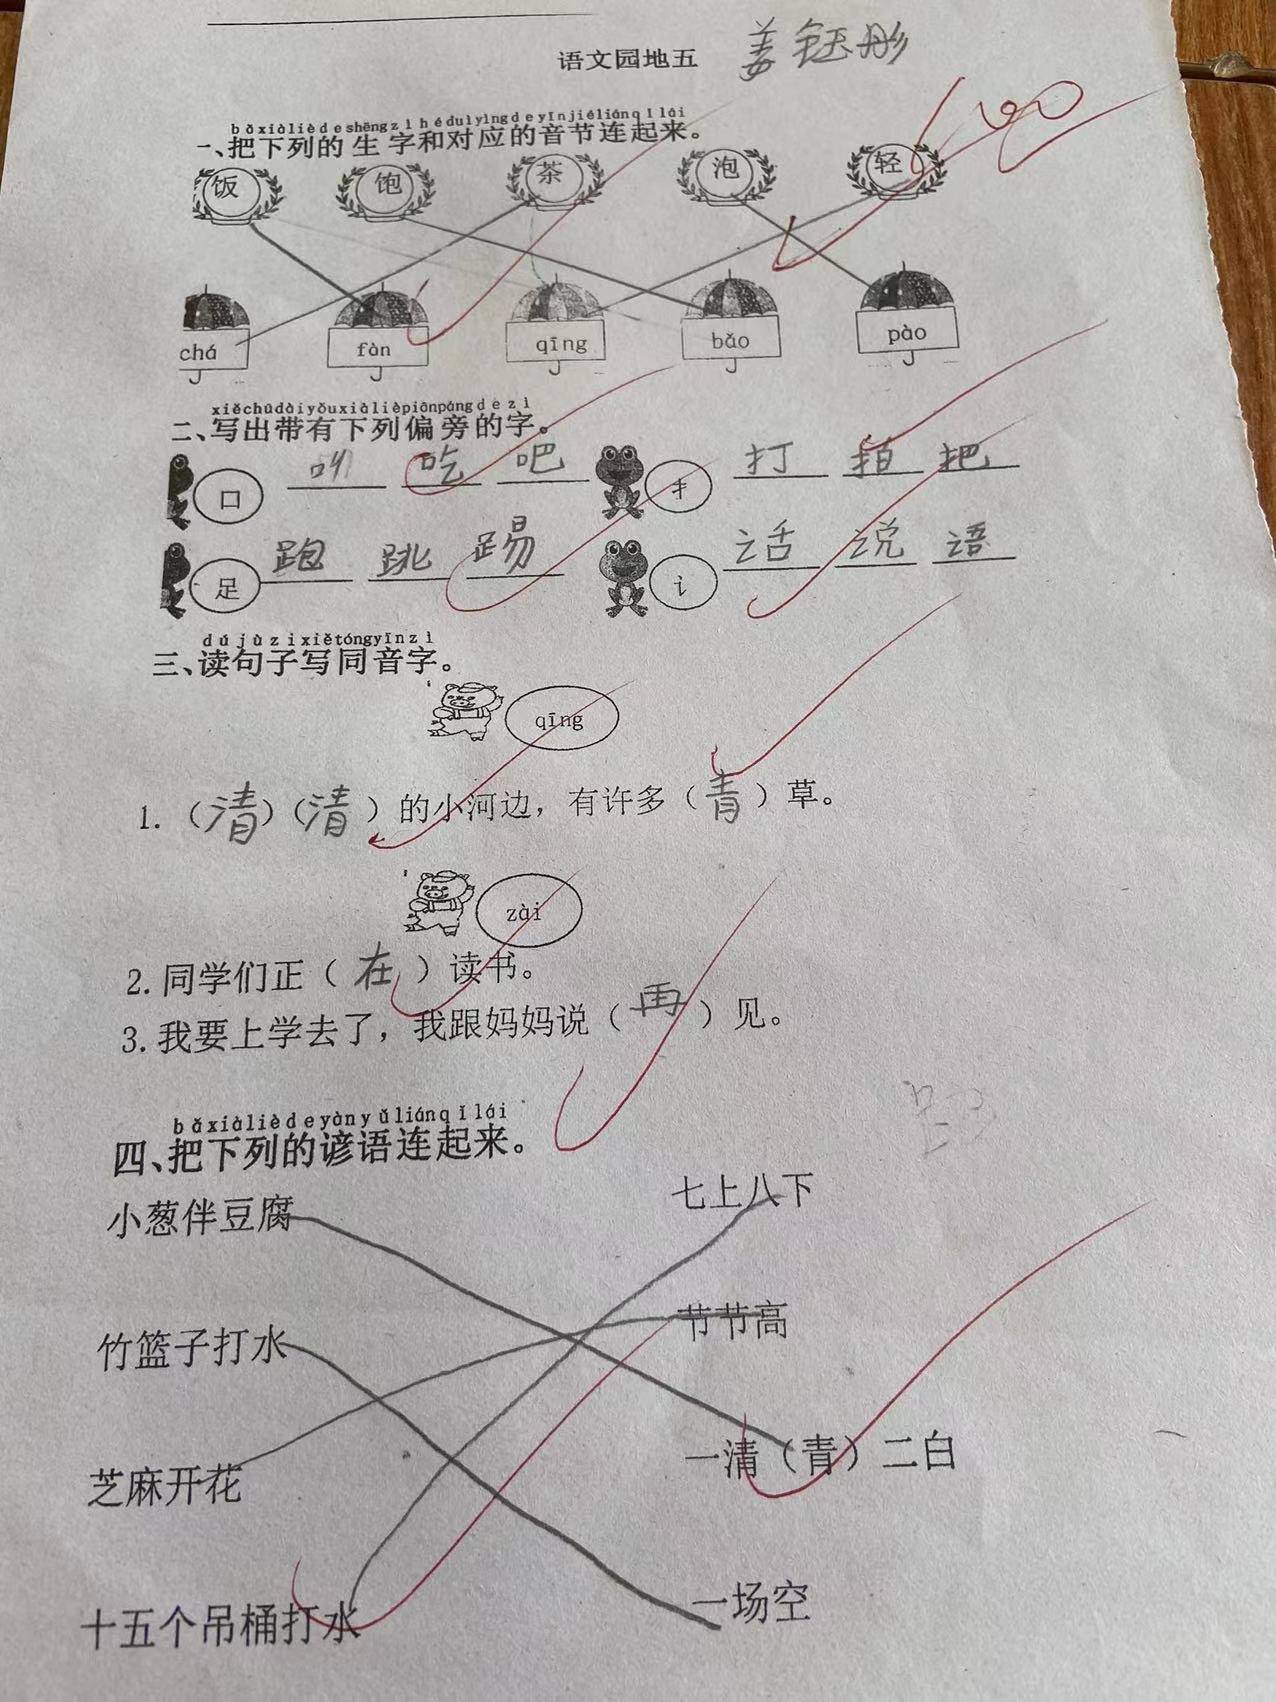 语文园地五 姜钰彤
100
bǎ xià liè de shēng zì hé duì yìng de yīn jié lián qǐ lái
一、把下列的生字和对应的音节连起来。
饭 饱 茶 泡 轻
chá fàn qīng bǎo pào
xiě chū dài yǒu xià liè piān páng de zì
二、写出带有下列偏旁的字。
口 叶 吃 吧 扌 打 拍 把
足 跑 跳 踢 讠 话 说 语
dú jù zi xiě tóng yīn zì
三、读句子写同音字。
qīng
1.（清）（清）的小河边，有许多（青）草。
zài
2.同学们正（在）读书。
3.我要上学去了，我跟妈妈说（再）见。
bǎ xià liè de yàn yǔ lián qǐ lái
四、把下列的谚语连起来。
小葱伴豆腐 七上八下
竹篮子打水 节节高
芝麻开花 一清（青）二白
十五个吊桶打水 一场空